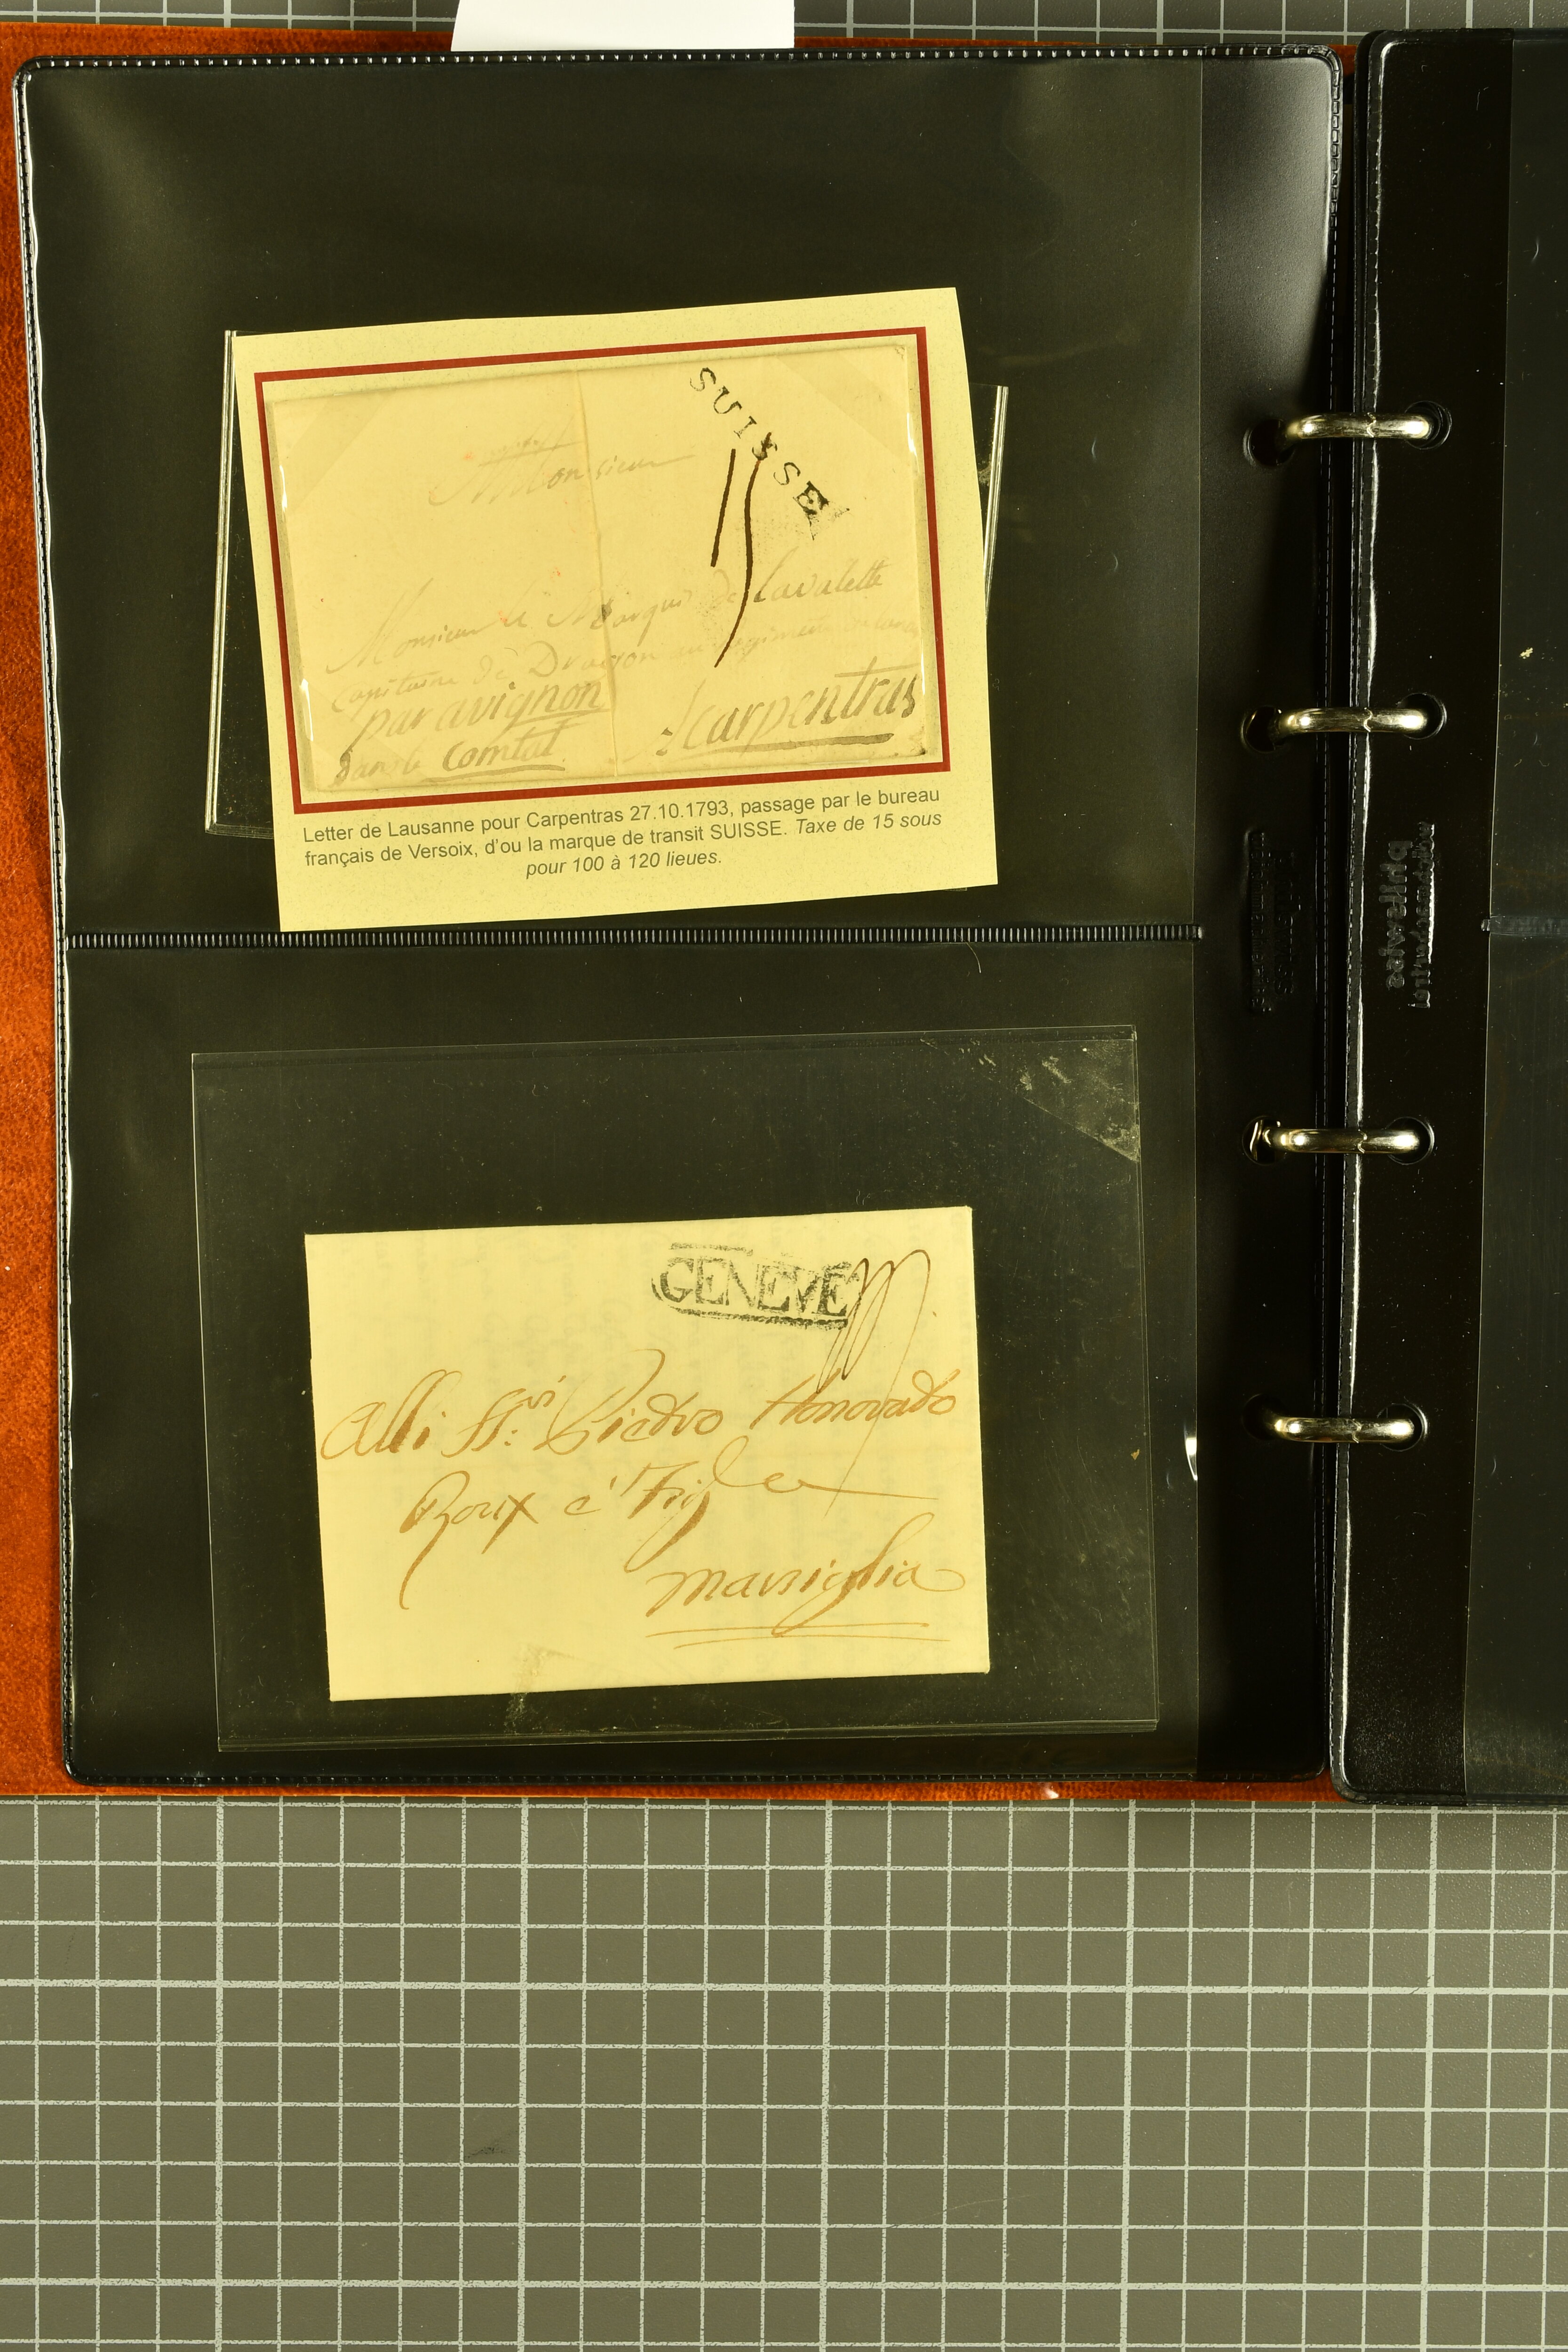 SUISSE
Monsieur
15
Monsieur le Marquis de Lavalette
Capitaine de Dragon au regiment
par avignon
dans le Comtat
Carpentras
Letter de Lausanne pour Carpentras 27.10.1793, passage par le bureau
français de Versoix, d'ou la marque de transit SUISSE. Taxe de 15 sous
pour 100 à 120 lieues.
GENEVE
Alli SS:ri Piedro Honorado
Roux è Fig
Marsiglia